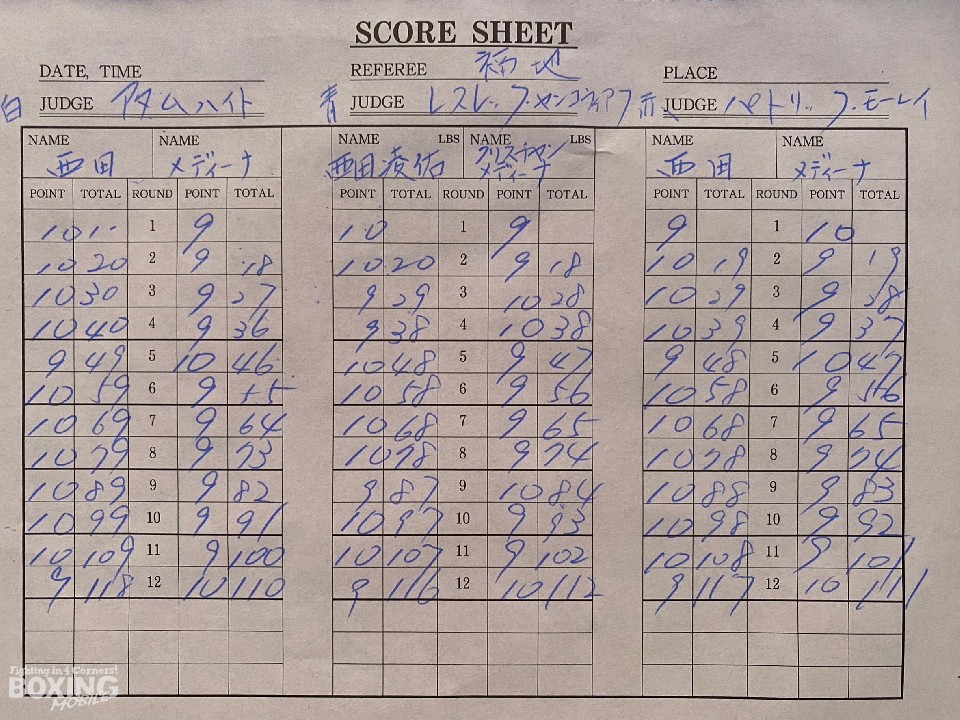 SCORE SHEET
DATE, TIME REFEREE 福地 PLACE
白 JUDGE アダムハイト 青 JUDGE レスレップ・カンコディアフ 赤 JUDGE パトリック・モーレイ
NAME NAME NAME LBS NAME LBS NAME NAME
西田 メディーナ 西田凌佑 クリスチャン メディーナ 西田 メディーナ
POINT TOTAL ROUND POINT TOTAL POINT TOTAL ROUND POINT TOTAL POINT TOTAL ROUND POINT TOTAL
10 1 9 10 1 9 9 1 10
10 20 2 9 18 10 20 2 9 18 10 19 2 9 19
10 30 3 9 27 9 29 3 10 28 10 29 3 9 28
10 40 4 9 36 9 38 4 10 38 10 39 4 9 37
9 49 5 10 46 10 48 5 9 47 9 48 5 10 47
10 59 6 9 55 10 58 6 9 56 10 58 6 9 56
10 69 7 9 64 10 68 7 9 65 10 68 7 9 65
10 79 8 9 73 10 78 8 9 74 10 78 8 9 74
10 89 9 9 82 9 87 9 10 84 10 88 9 9 83
10 99 10 9 91 10 97 10 9 93 10 98 10 9 92
10 109 11 9 100 10 107 11 9 102 10 108 11 9 101
9 118 12 10 110 9 116 12 10 112 9 117 12 10 111
Fighting in 4 Corners!
BOXING
MOBILE